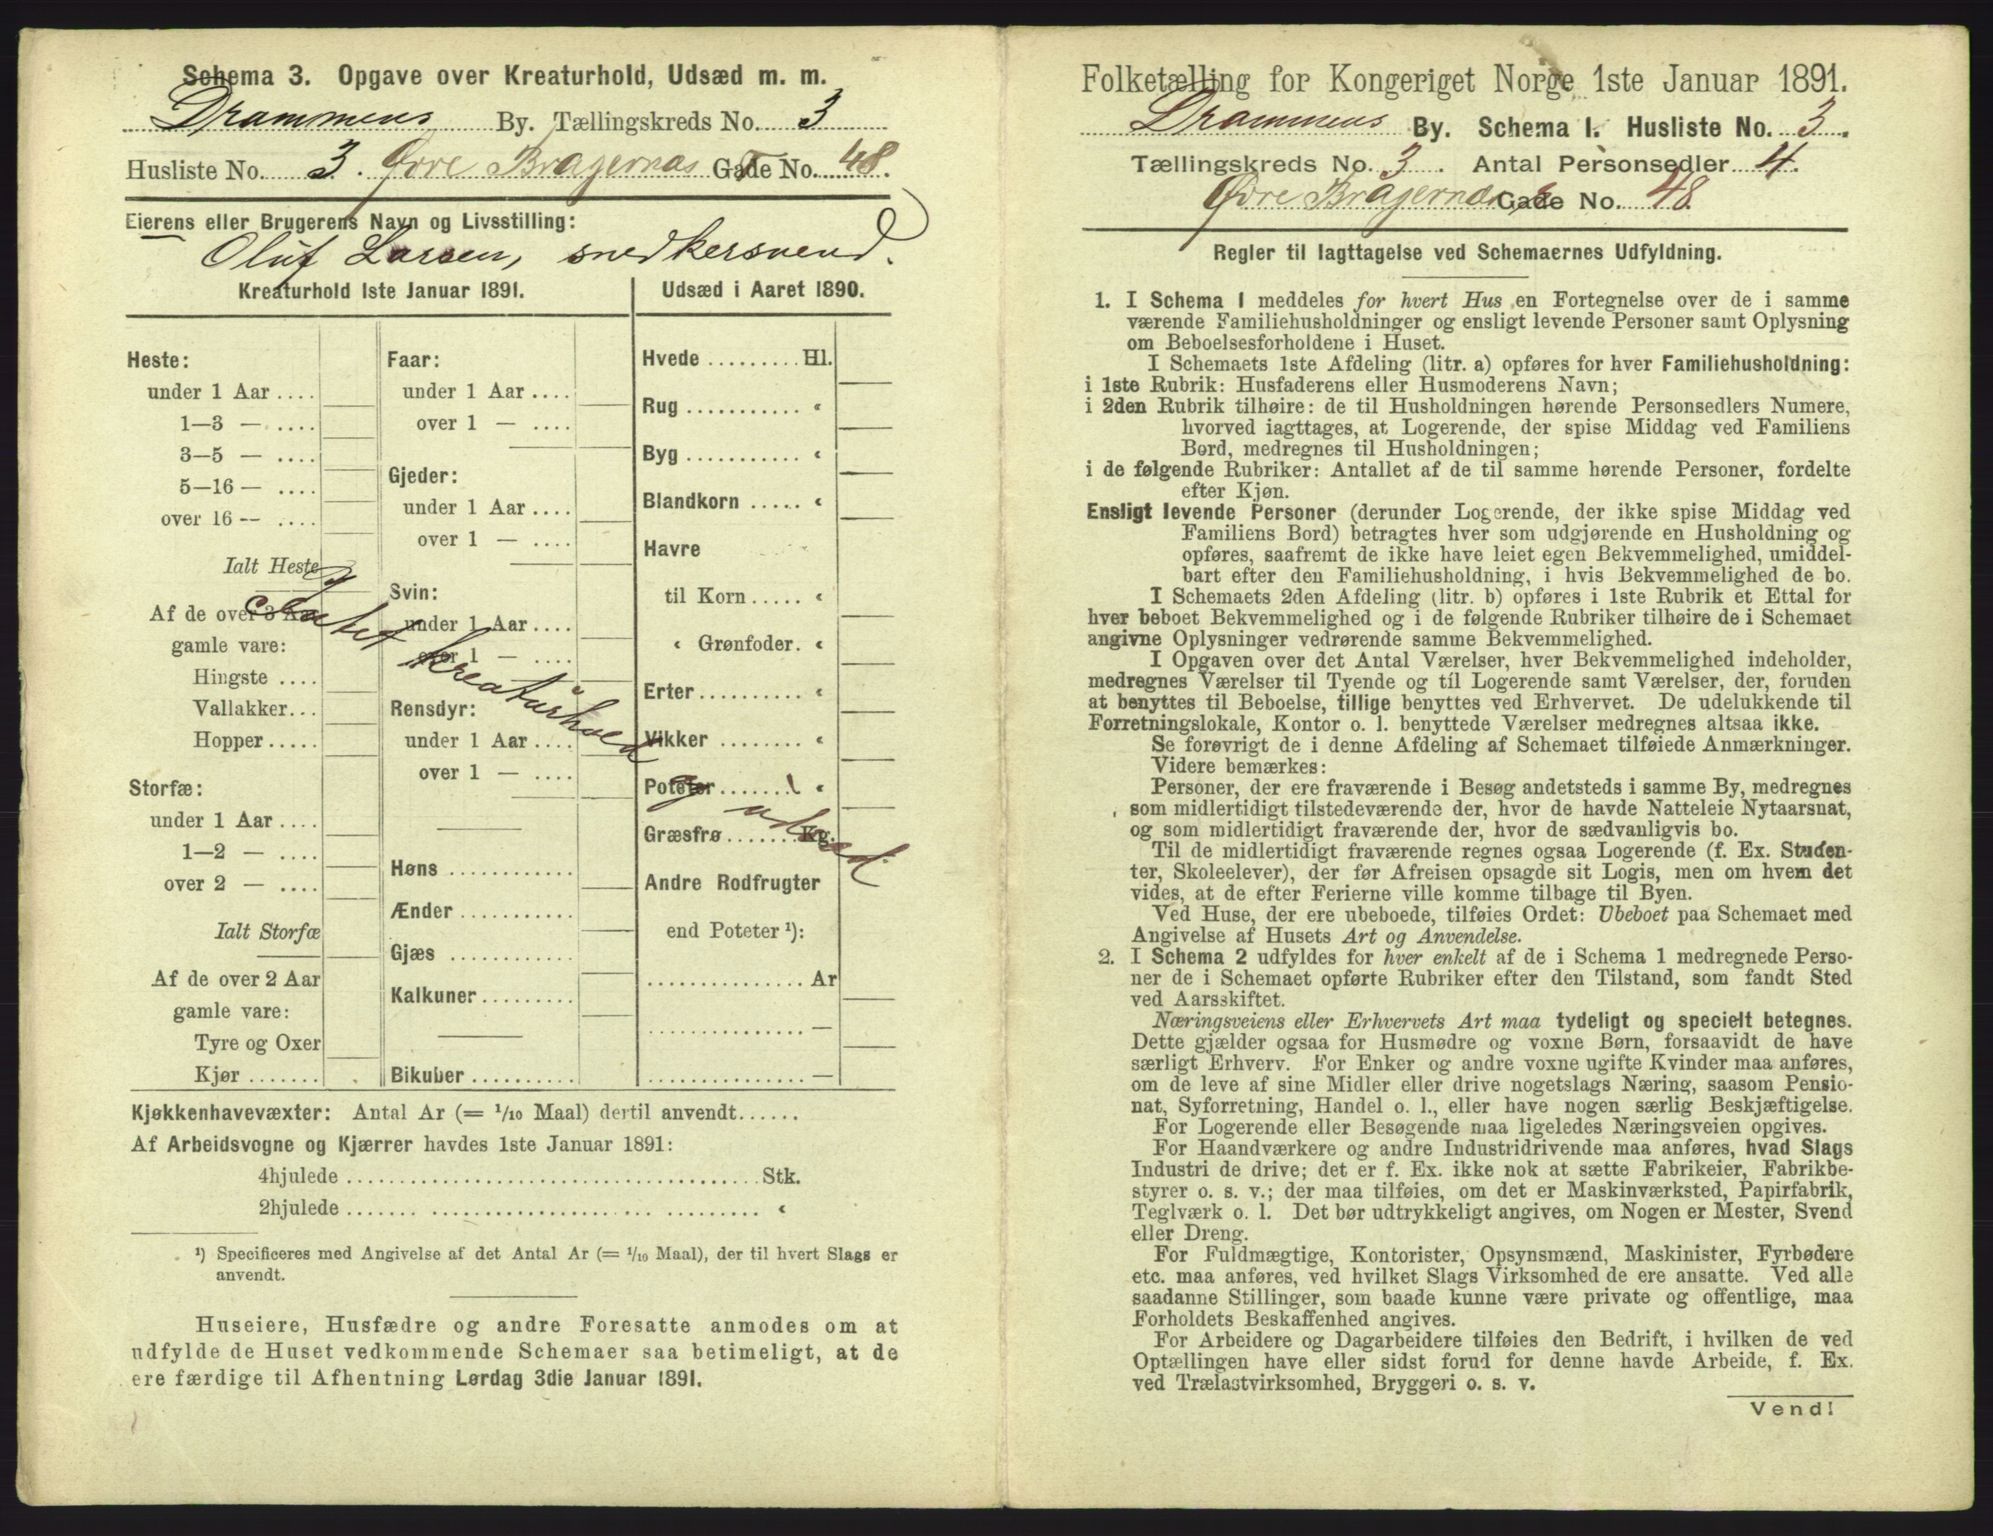 Schema 3. Opgave over Kreaturhold, Udsæd m. m.
Drammens By. Tællingskreds No. 3
Husliste No. 3. Øvre Bragernæs Gade No. 48.
Eierens eller Brugerens Navn og Livsstilling:
Oluf Larsen, snedkersvend.
Kreaturhold 1ste Januar 1891.
Heste:
under 1 Aar ....
1—3 — ....
3—5 — ....
5—16 — ....
over 16 — ....
Ialt Heste
Af de over 3 Aar
gamle vare:
Hingste ....
Vallakker...
Hopper.....
Storfæ:
under 1 Aar ....
1—2 — ....
over 2 — ....
Ialt Storfæ
Af de over 2 Aar
gamle vare:
Tyre og Oxer
Kjør .......
Faar:
under 1 Aar ....
over 1 — ....
Gjeder:
under 1 Aar ....
over 1 — ....
Svin:
under 1 Aar ....
over 1 — ....
Rensdyr:
under 1 Aar ....
over 1 — ....
Høns ..........
Ænder .........
Gjæs ..........
Kalkuner.......
Bikuber ........
Udsæd i Aaret 1890.
Hvede ......... Hl.
Rug ........... «
Byg ........... «
Blandkorn ..... «
Havre
til Korn ..... «
« Grønfoder. «
Erter.......... «
Vikker ........ «
Poteter ....... «
Græsfrø....... Kg.
Andre Rodfrugter
end Poteter ¹):
............... Ar
............... —
............... —
kreaturhold
og udsæd.
Kjøkkenhavevæxter: Antal Ar (= 1/10 Maal) dertil anvendt......
Af Arbeidsvogne og Kjærrer havdes 1ste Januar 1891:
4hjulede ........................................ Stk.
2hjulede ........................................ «
¹) Specificeres med Angivelse af det Antal Ar (= 1/10 Maal), der til hvert Slags er
anvendt.
Huseiere, Husfædre og andre Foresatte anmodes om at
udfylde de Huset vedkommende Schemaer saa betimeligt, at de
ere færdige til Afhentning Lørdag 3die Januar 1891.
Folketælling for Kongeriget Norge 1ste Januar 1891.
Drammens By. Schema 1. Husliste No. 3.
Tællingskreds No. 3. Antal Personsedler 4.
Øvre Bragernæs Gade No. 48
Regler til Iagttagelse ved Schemaernes Udfyldning.
1. I Schema 1 meddeles for hvert Hus en Fortegnelse over de i samme
værende Familiehusholdninger og ensligt levende Personer samt Oplysning
om Beboelsesforholdene i Huset.
I Schemaets 1ste Afdeling (litr. a) opføres for hver Familiehusholdning:
i 1ste Rubrik: Husfaderens eller Husmoderens Navn;
i 2den Rubrik tilhøire: de til Husholdningen hørende Personsedlers Numere,
hvorved iagttages, at Logerende, der spise Middag ved Familiens
Bord, medregnes til Husholdningen;
i de følgende Rubriker: Antallet af de til samme hørende Personer, fordelte
efter Kjøn.
Ensligt levende Personer (derunder Logerende, der ikke spise Middag ved
Familiens Bord) betragtes hver som udgjørende en Husholdning og
opføres, saafremt de ikke have leiet egen Bekvemmelighed, umiddel-
bart efter den Familiehusholdning, i hvis Bekvemmelighed de bo.
I Schemaets 2den Afdeling (litr. b) opføres i 1ste Rubrik et Ettal for
hver beboet Bekvemmelighed og i de følgende Rubriker tilhøire de i Schemaet
angivne Oplysninger vedrørende samme Bekvemmelighed.
I Opgaven over det Antal Værelser, hver Bekvemmelighed indeholder,
medregnes Værelser til Tyende og til Logerende samt Værelser, der, foruden
at benyttes til Beboelse, tillige benyttes ved Erhvervet. De udelukkende til
Forretningslokale, Kontor o. l. benyttede Værelser medregnes altsaa ikke.
Se forøvrigt de i denne Afdeling af Schemaet tilføiede Anmærkninger.
Videre bemærkes:
Personer, der ere fraværende i Besøg andetsteds i samme By, medregnes
som midlertidigt tilstedeværende der, hvor de havde Natteleie Nytaarsnat,
og som midlertidigt fraværende der, hvor de sædvanligvis bo.
Til de midlertidigt fraværende regnes ogsaa Logerende (f. Ex. Studen-
ter, Skoleelever), der før Afreisen opsagde sit Logis, men om hvem det
vides, at de efter Ferierne ville komme tilbage til Byen.
Ved Huse, der ere ubeboede, tilføies Ordet: Ubeboet paa Schemaet med
Angivelse af Husets Art og Anvendelse.
2. I Schema 2 udfyldes for hver enkelt af de i Schema 1 medregnede Perso-
ner de i Schemaet opførte Rubriker efter den Tilstand, som fandt Sted
ved Aarsskiftet.
Næringsveiens eller Erhvervets Art maa tydeligt og specielt betegnes.
Dette gjælder ogsaa for Husmødre og voxne Børn, forsaavidt de have
særligt Erhverv. For Enker og andre voxne ugifte Kvinder maa anføres,
om de leve af sine Midler eller drive nogetslags Næring, saasom Pensio-
nat, Syforretning, Handel o. l., eller have nogen særlig Beskjæftigelse.
For Logerende eller Besøgende maa ligeledes Næringsveien opgives.
For Haandværkere og andre Industridrivende maa anføres, hvad Slags
Industri de drive; det er f. Ex. ikke nok at sætte Fabrikeier, Fabrikbe-
styrer o. s. v.; der maa tilføies, om det er Maskinværksted, Papirfabrik,
Teglværk o. l. Det bør udtrykkeligt angives, om Nogen er Mester, Svend
eller Dreng.
For Fuldmægtige, Kontorister, Opsynsmænd, Maskinister, Fyrbødere
etc. maa anføres, ved hvilket Slags Virksomhed de ere ansatte. Ved alle
saadanne Stillinger, som baade kunne være private og offentlige, maa
Forholdets Beskaffenhed angives.
For Arbeidere og Dagarbeidere tilføies den Bedrift, i hvilken de ved
Optællingen have eller sidst forud for denne havde Arbeide, f. Ex.
ved Trælastvirksomhed, Bryggeri o. s. v.
Vend!